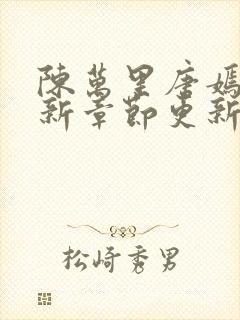 陳萬里唐嫣
新章節更新
松崎秀男